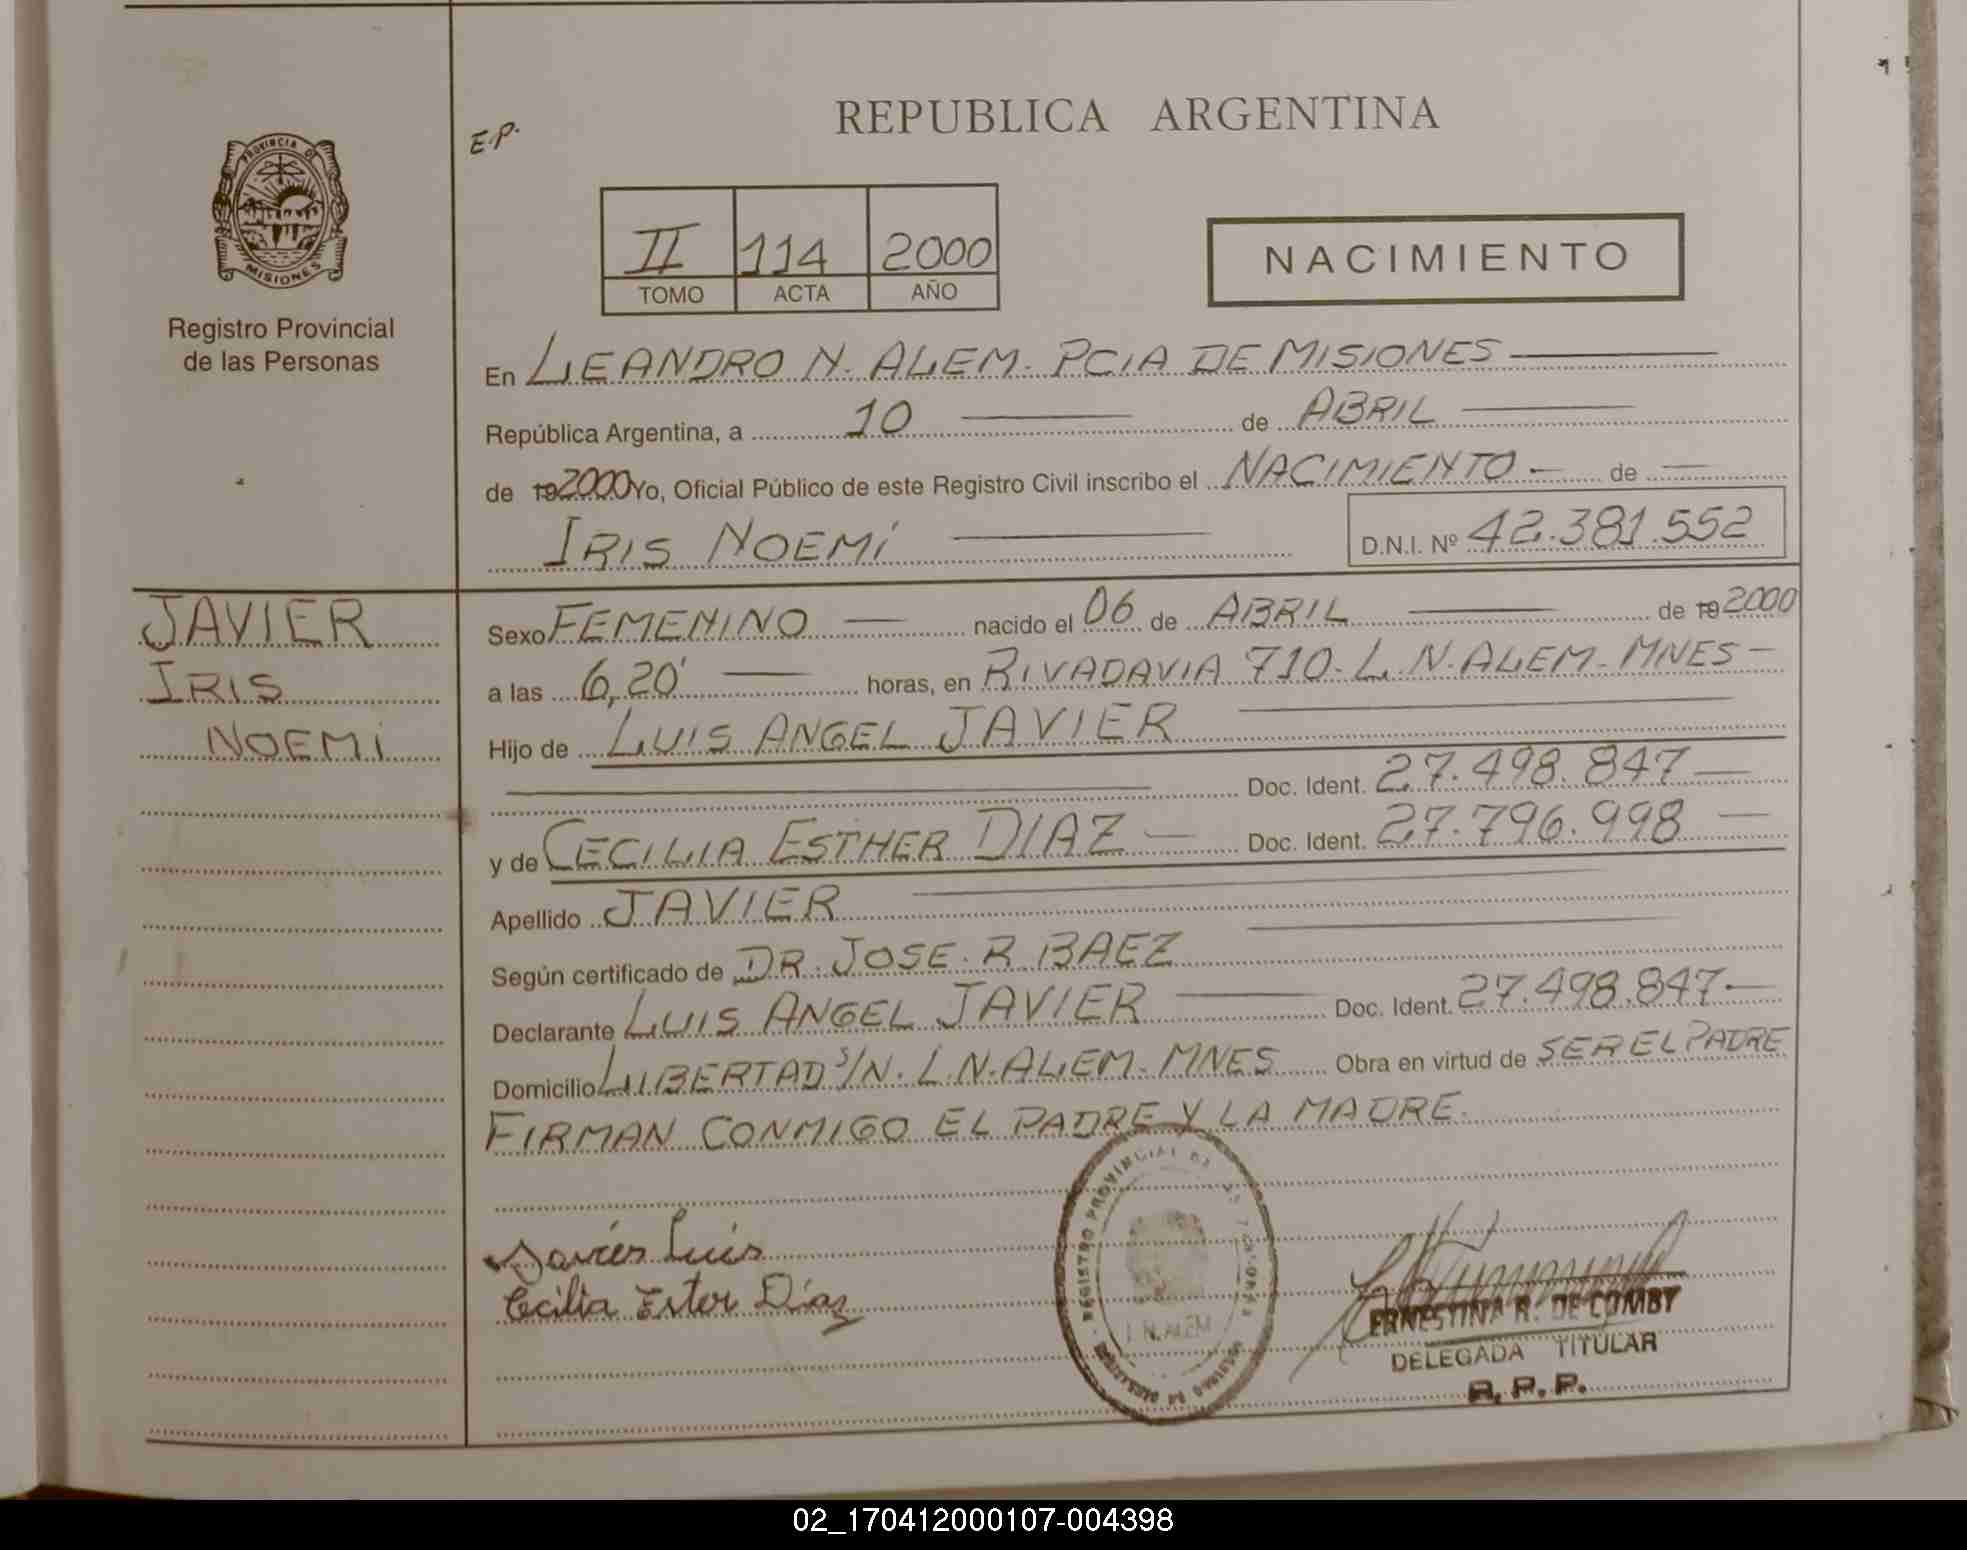 PROVINCIA DE
MISIONES
Registro Provincial
de las Personas
E.P.
REPUBLICA ARGENTINA
II 114 2000
TOMO ACTA AÑO
NACIMIENTO
En LEANDRO N. ALEM. PCIA DE MISIONES
República Argentina, a 10 de ABRIL
de 19 2000 Yo, Oficial Público de este Registro Civil inscribo el NACIMIENTO de
IRIS NOEMí D.N.I. Nº 42.381.552
JAVIER
IRIS
NOEMí
Sexo FEMENINO nacido el 06 de ABRIL de 19 2000
a las 6,20' horas, en RIVADAVIA 710. L.N.ALEM. MNES
Hijo de LUIS ANGEL JAVIER
Doc. Ident. 27.498.847
y de CECILIA ESTHER DIAZ Doc. Ident. 27.796.998
Apellido JAVIER
Según certificado de DR. JOSE. R BAEZ
Declarante LUIS ANGEL JAVIER Doc. Ident. 27.498.847
Domicilio LIBERTAD S/N. L.N.ALEM. MNES Obra en virtud de SER EL PADRE
FIRMAN CONMIGO EL PADRE Y LA MADRE.
Javier Luis
Cecilia Ester Díaz
REGISTRO PROVINCIAL DE
L.N.ALEM
ERNESTINA R. DE COMBY
DELEGADA TITULAR
R.P.P.
02_170412000107-004398